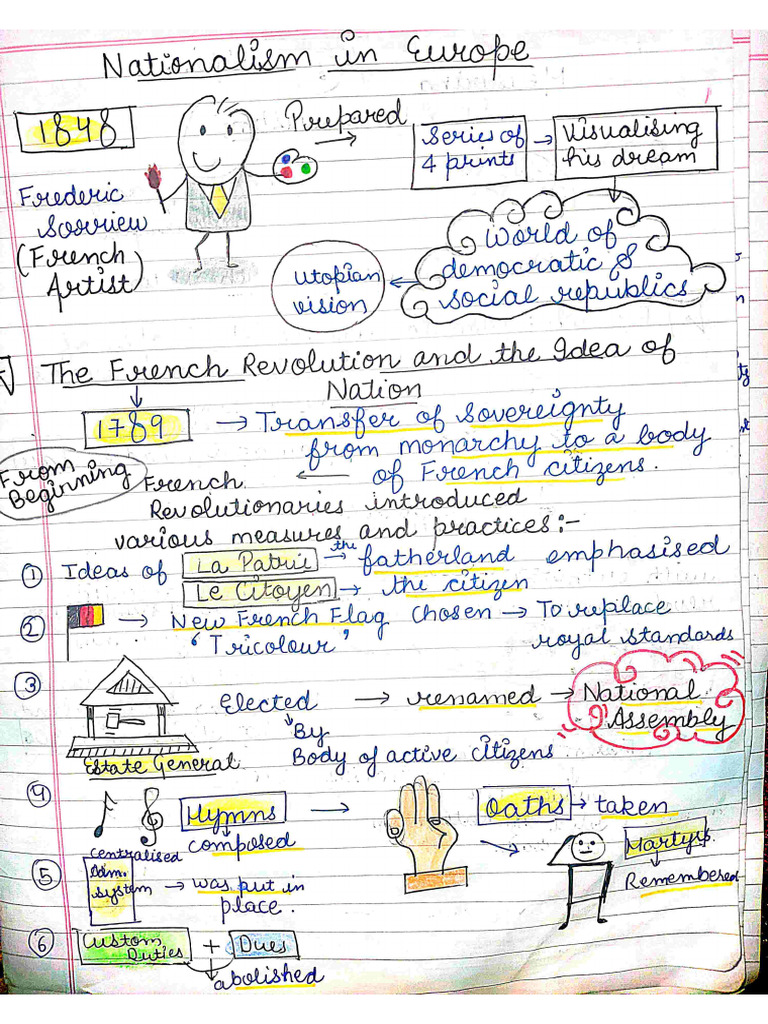 Nationalism in Europe
1848
Prepared
Series of
4 prints
Visualising
his dream
Frederic
Sorrieu
(French
Artist)
World of
democratic &
social republics
Utopian
vision
The French Revolution and the Idea of
Nation
1789
Transfer of sovereignty
from monarchy to a body
of French citizens.
From
Beginning
French
Revolutionaries introduced
various measures and practices:-
1 Ideas of La Patrie the fatherland emphasised
Le Citoyen the citizen
2 New French Flag chosen To replace
'Tricolour' royal standards
3 Elected renamed National
Assembly
By
Body of active citizens
Estate General
4 Hymns Oaths taken
composed
Martyrs
Remembered
5 Centralised
Adm.
System was put in
place.
6 Custom Duties + Dues
abolished